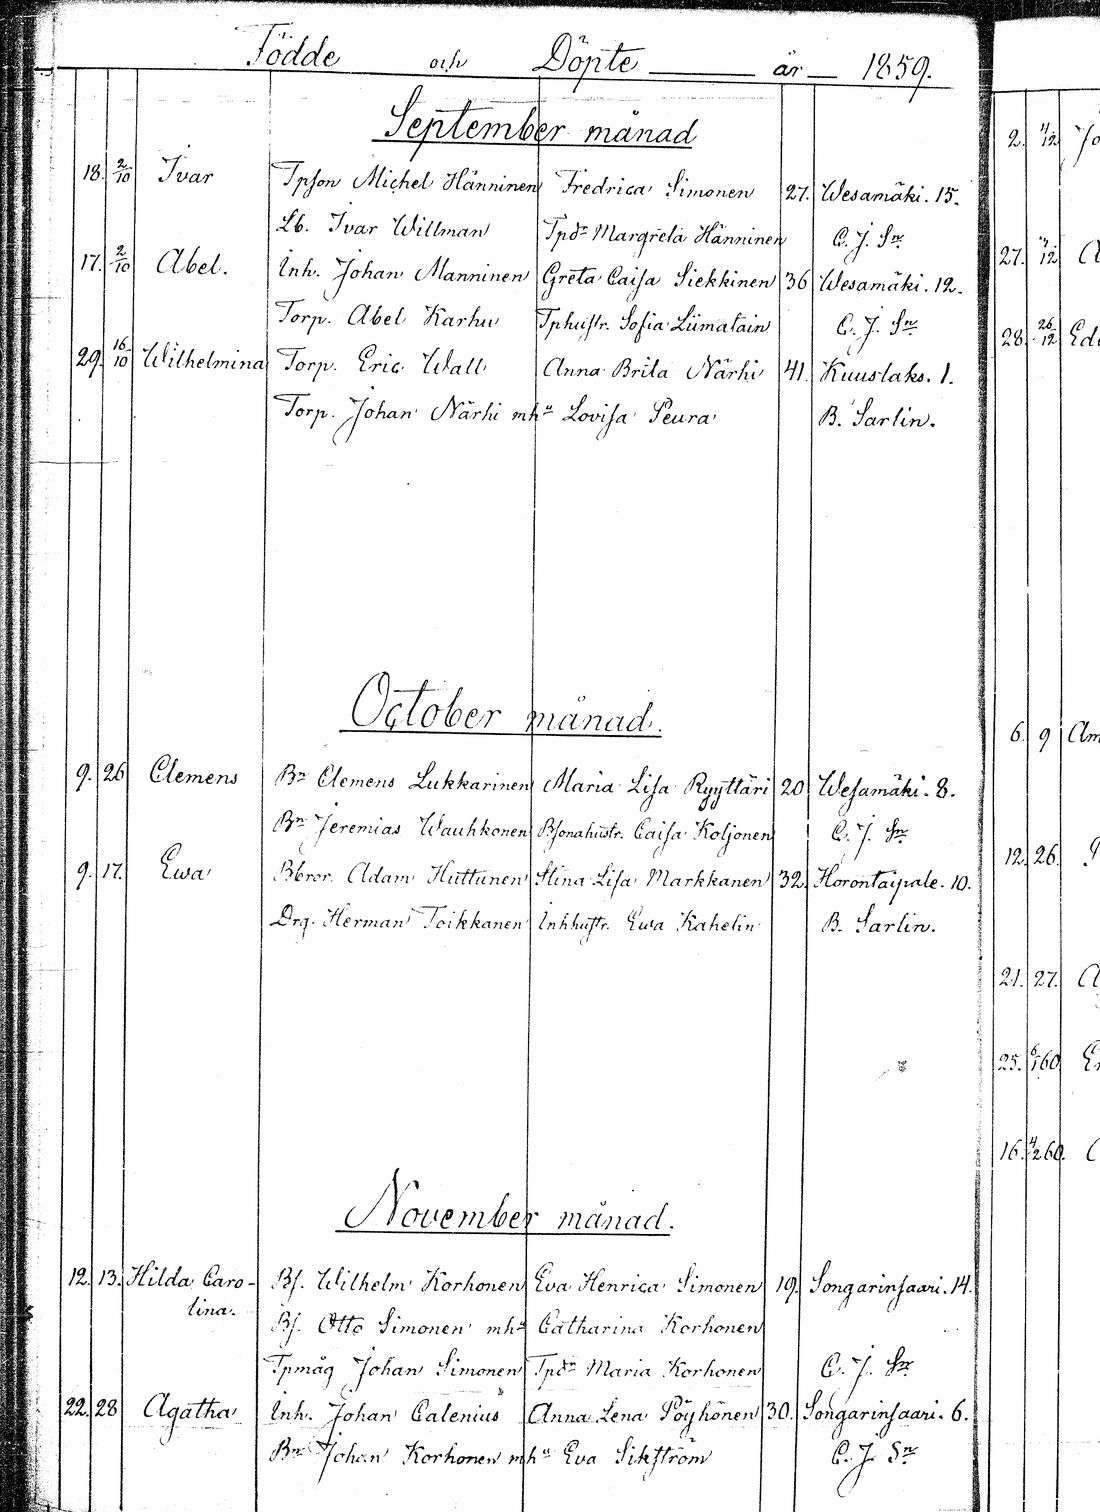 Födde och Döpte år 1859.
September månad
18. 2/10 Ivar Tpson Michel Hänninen Fredrica Simonen 27. Wesamäki. 15.
Lb. Ivar Willman Tpdr Margreta Hänninen C. J. Sn
17. 2/10 Abel. Inh. Johan Manninen Greta Caisa Siekkinen 36 Wesamäki. 12.
Torp. Abel Karhu Tphustr. Sofia Liimatain C. J. Sn
29. 16/10 Wilhelmina Torp. Eric Wall Anna Brita Närhi 41. Kuuslaks. 1.
Torp. Johan Närhi mha Lovisa Peura B. Sarlin.
October månad.
9. 26 Clemens Bn Clemens Lukkarinen Maria Lisa Ryyttäri 20 Wesamäki. 8.
Bn Jeremias Wauhkonen Bsonahustr. Caisa Koljonen C. J. Sn
9. 17. Ewa Bbror. Adam Huttunen Stina Lisa Markkanen 32. Horontaipale. 10.
Drg. Herman Toikkanen Inhhustr. Ewa Kahelin B. Sarlin.
November månad.
12. 13. Hilda Caro- Bs. Wilhelm Korhonen Eva Henrica Simonen 19. Songarinsaari. 14.
lina.
Bs. Otto Simonen mha Catharina Korhonen
Tpmåg Johan Simonen Tpdr Maria Korhonen C. J. Sn
22. 28 Agatha Inh. Johan Calenius Anna Lena Pöyhönen 30. Songarinsaari. 6.
Bn Johan Korhonen mha Eva Sikström C. J. Sn
2. 4/12
27. 4/12
28. 26/12
6. 9
12. 26.
21. 27.
25. 6/1 60
16. 4/2 60.